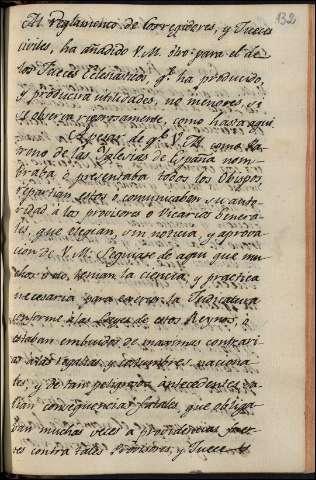 132
Al reglamento de Corregidores, y Jueces
civiles, ha añadido V. M. otro para el de
los Jueces Eclesiásticos, qe. ha producido,
y producirá utilidades, no menores, si
se observa rigorosamente, como hasta aqui
A pesar de qe. V. M. como Pa-
trono de las Iglesias de España nom-
braba ò presentaba todos los Obispos
repartian estos ò comunicaban su auto-
ridad à los provisores o Vicarios Genera-
les, que elegian, sin noticia, y aprova-
cion de V. M. Seguiase de aqui que mu-
chos ò no tenian la ciencia, y practica
necesaria para exercer la Judicatura
conforme à las Leyes de estos Reynos, ò
estaban embuidos de maximas contrari-
as à las regalías, y costumbres naciona-
les; y de tam peligrosos antecedentes sa-
lian consequencias fatales, que obliga-
ban muchas veces à providencias fuer-
tes contra tales Provisores, y Jueces